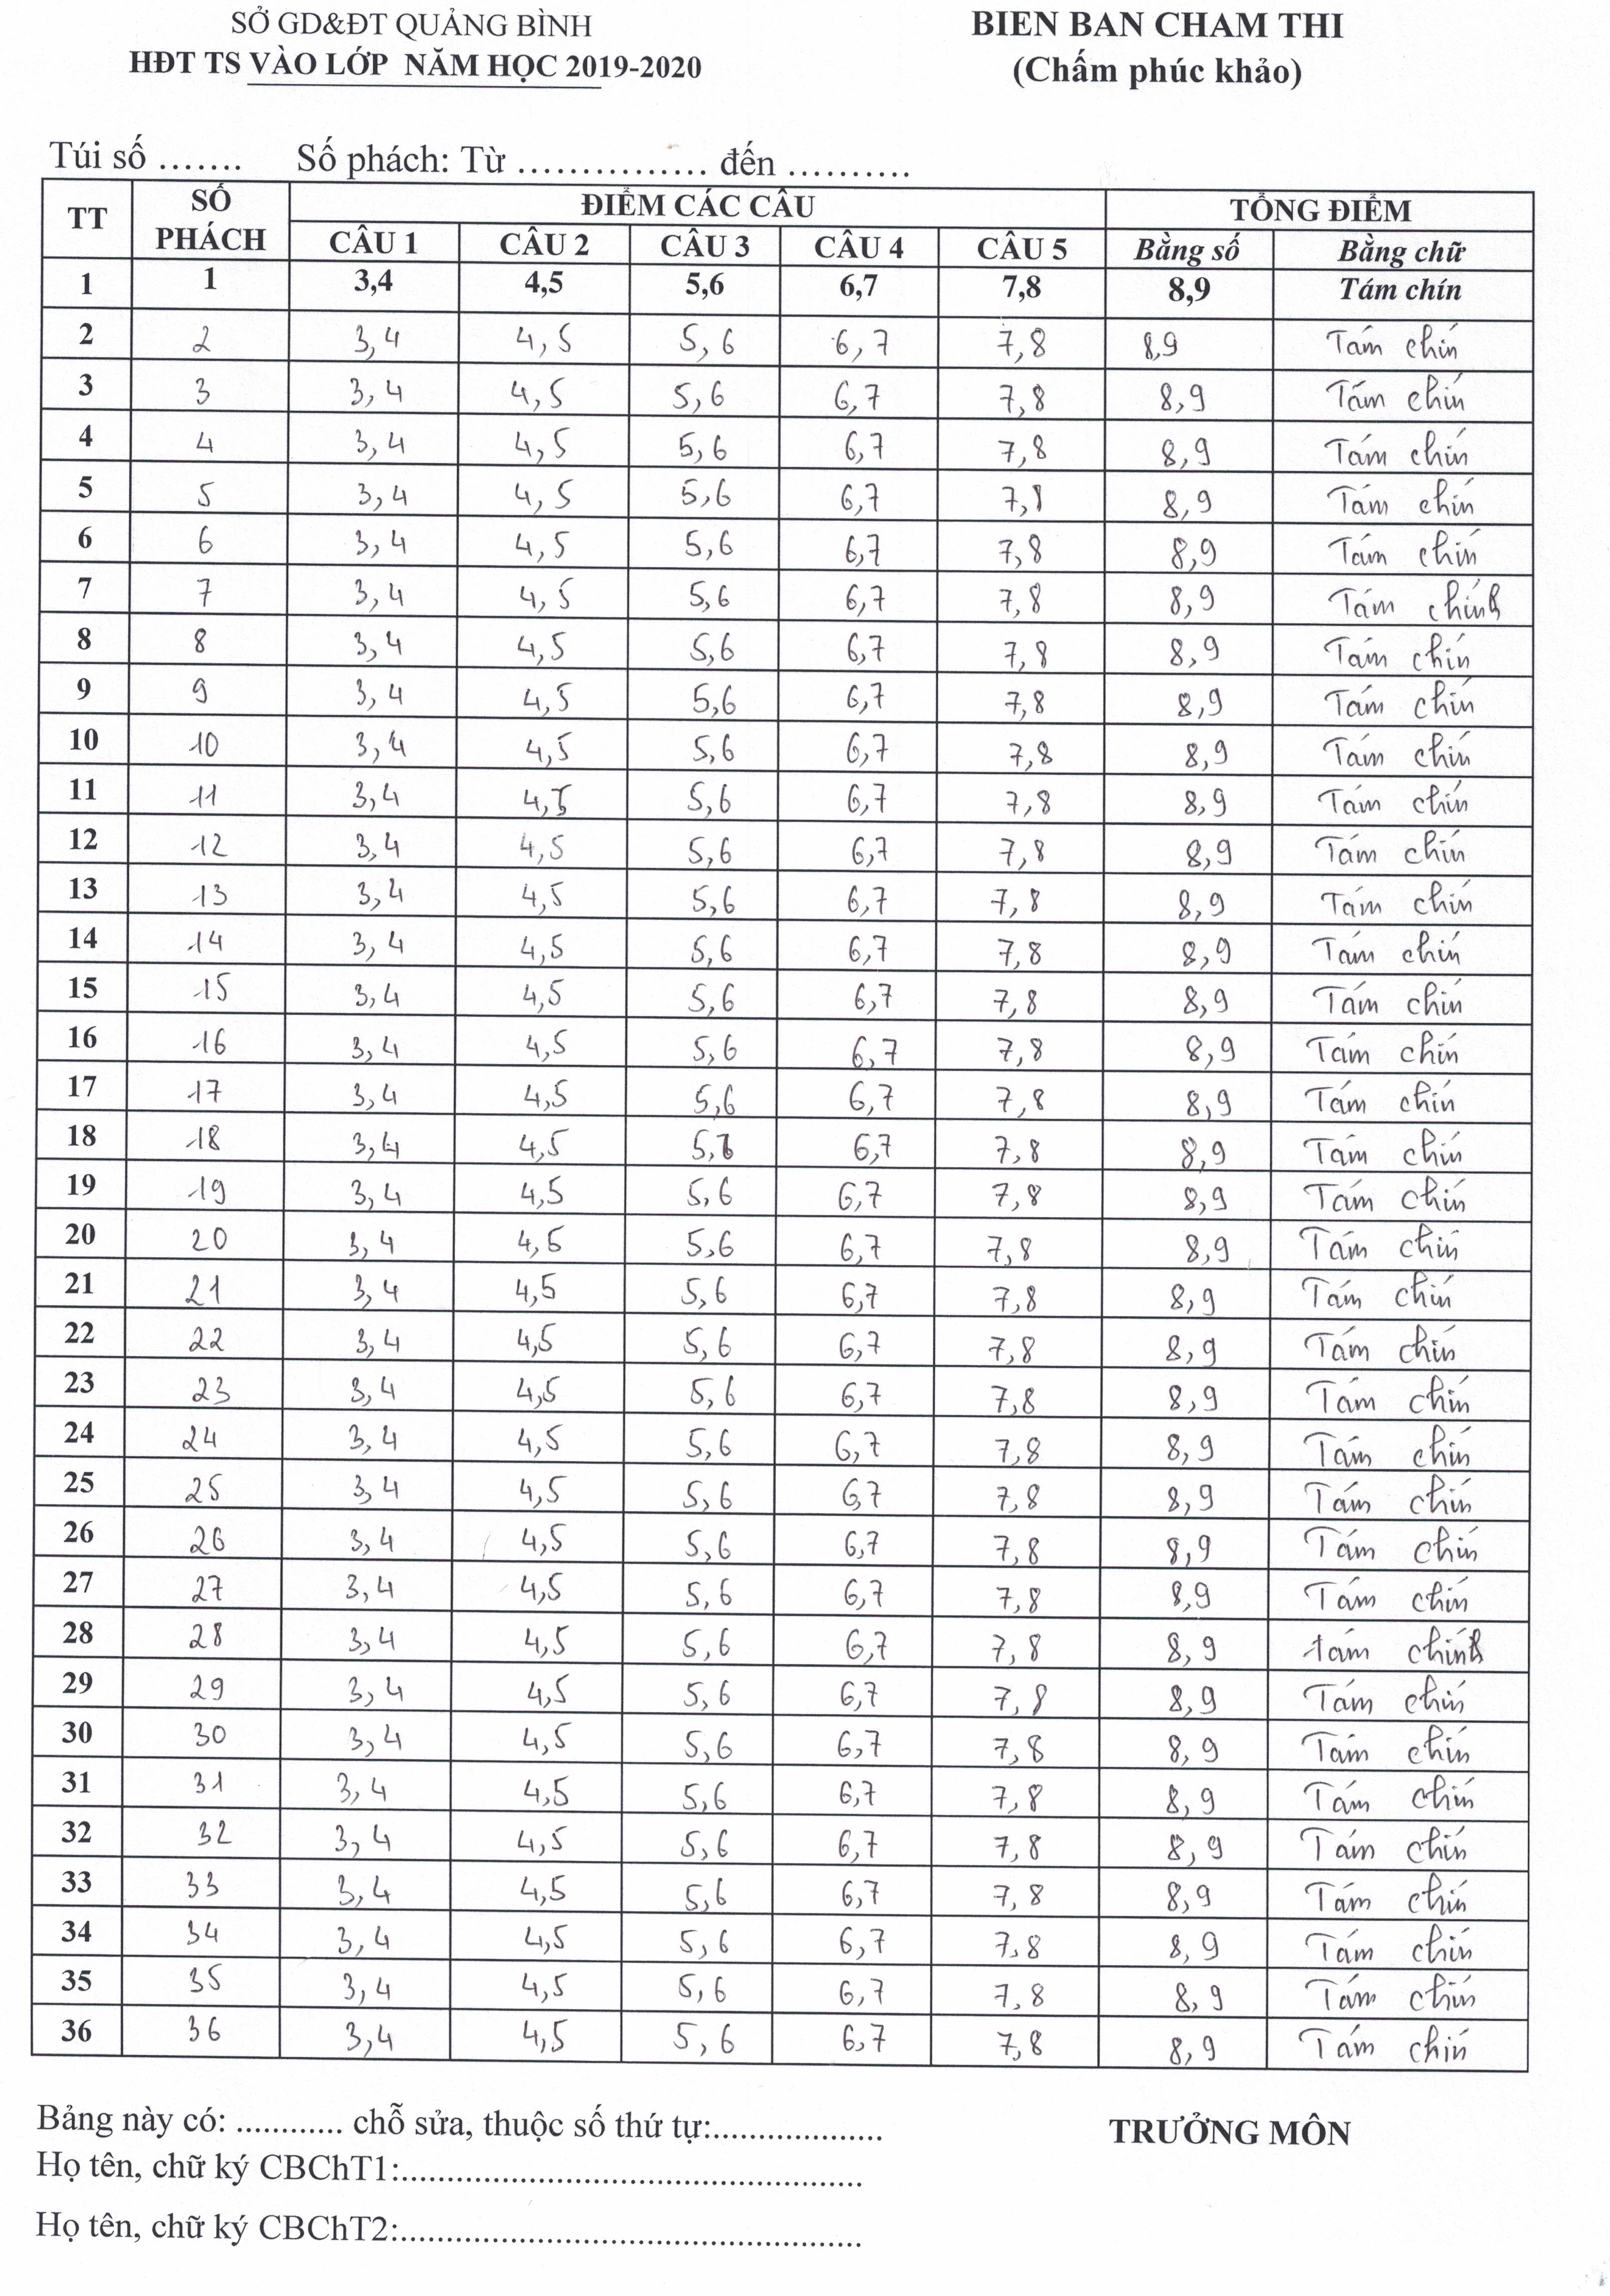 SỞ GD&ĐT QUẢNG BÌNH
HĐT TS VÀO LỚP NĂM HỌC 2019-2020
BIEN BAN CHAM THI
(Chấm phúc khảo)
Túi số ....... Số phách: Từ ............... đến ..........
TT SỐ PHÁCH ĐIỂM CÁC CÂU TỔNG ĐIỂM
CÂU 1 CÂU 2 CÂU 3 CÂU 4 CÂU 5 Bằng số Bằng chữ
1 1 3,4 4,5 5,6 6,7 7,8 8,9 Tám chín
2 2 3,4 4,5 5,6 6,7 7,8 8,9 Tám chín
3 3 3,4 4,5 5,6 6,7 7,8 8,9 Tám chín
4 4 3,4 4,5 5,6 6,7 7,8 8,9 Tám chín
5 5 3,4 4,5 5,6 6,7 7,8 8,9 Tám chín
6 6 3,4 4,5 5,6 6,7 7,8 8,9 Tám chín
7 7 3,4 4,5 5,6 6,7 7,8 8,9 Tám chính
8 8 3,4 4,5 5,6 6,7 7,8 8,9 Tám chín
9 9 3,4 4,5 5,6 6,7 7,8 8,9 Tám chín
10 10 3,4 4,5 5,6 6,7 7,8 8,9 Tám chín
11 11 3,4 4,5 5,6 6,7 7,8 8,9 Tám chín
12 12 3,4 4,5 5,6 6,7 7,8 8,9 Tám chín
13 13 3,4 4,5 5,6 6,7 7,8 8,9 Tám chín
14 14 3,4 4,5 5,6 6,7 7,8 8,9 Tám chín
15 15 3,4 4,5 5,6 6,7 7,8 8,9 Tám chín
16 16 3,4 4,5 5,6 6,7 7,8 8,9 Tám chín
17 17 3,4 4,5 5,6 6,7 7,8 8,9 Tám chín
18 18 3,4 4,5 5,6 6,7 7,8 8,9 Tám chín
19 19 3,4 4,5 5,6 6,7 7,8 8,9 Tám chín
20 20 3,4 4,5 5,6 6,7 7,8 8,9 Tám chín
21 21 3,4 4,5 5,6 6,7 7,8 8,9 Tám chín
22 22 3,4 4,5 5,6 6,7 7,8 8,9 Tám chín
23 23 3,4 4,5 5,6 6,7 7,8 8,9 Tám chín
24 24 3,4 4,5 5,6 6,7 7,8 8,9 Tám chín
25 25 3,4 4,5 5,6 6,7 7,8 8,9 Tám chín
26 26 3,4 4,5 5,6 6,7 7,8 8,9 Tám chín
27 27 3,4 4,5 5,6 6,7 7,8 8,9 Tám chín
28 28 3,4 4,5 5,6 6,7 7,8 8,9 tám chính
29 29 3,4 4,5 5,6 6,7 7,8 8,9 Tám chín
30 30 3,4 4,5 5,6 6,7 7,8 8,9 Tám chín
31 31 3,4 4,5 5,6 6,7 7,8 8,9 Tám chín
32 32 3,4 4,5 5,6 6,7 7,8 8,9 Tám chín
33 33 3,4 4,5 5,6 6,7 7,8 8,9 Tám chín
34 34 3,4 4,5 5,6 6,7 7,8 8,9 Tám chín
35 35 3,4 4,5 5,6 6,7 7,8 8,9 Tám chín
36 36 3,4 4,5 5,6 6,7 7,8 8,9 Tám chín
Bảng này có: ............ chỗ sửa, thuộc số thứ tự:...................
TRƯỞNG MÔN
Họ tên, chữ ký CBChT1:....................................................
Họ tên, chữ ký CBChT2:....................................................